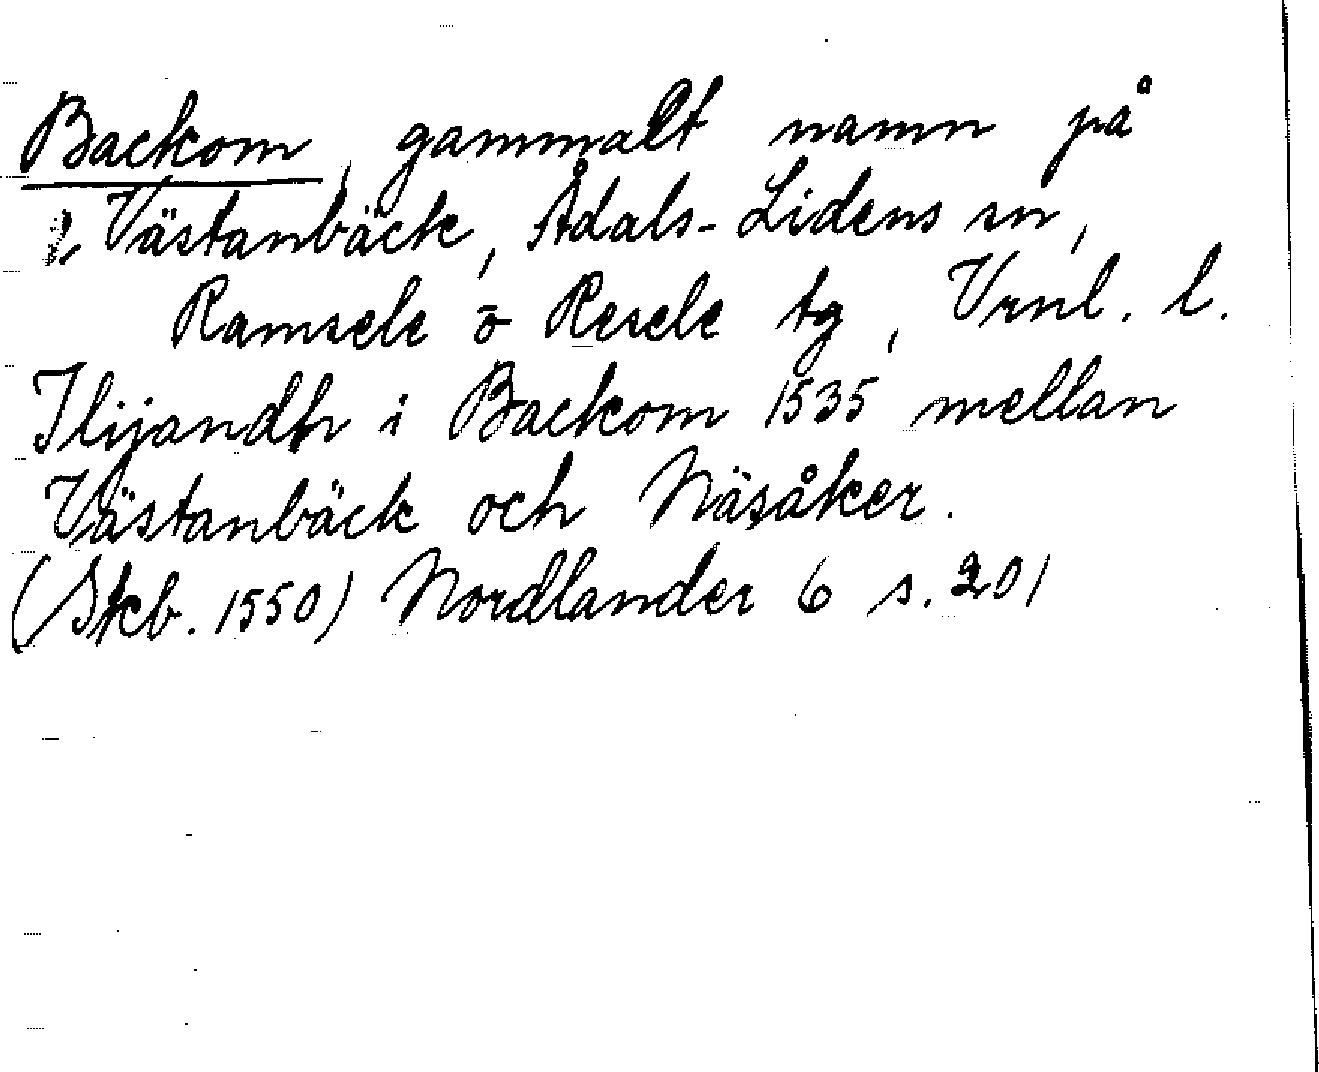 Backom, gammalt namn på
Västanbäck, Ådals-Lidens sn,
Ramsele o Resele tg, Vrnl. l.
Ilijandh i Backom 1535 mellan
Västanbäck och Näsåker.
(Skb. 1550) Nordlander 6 s. 201